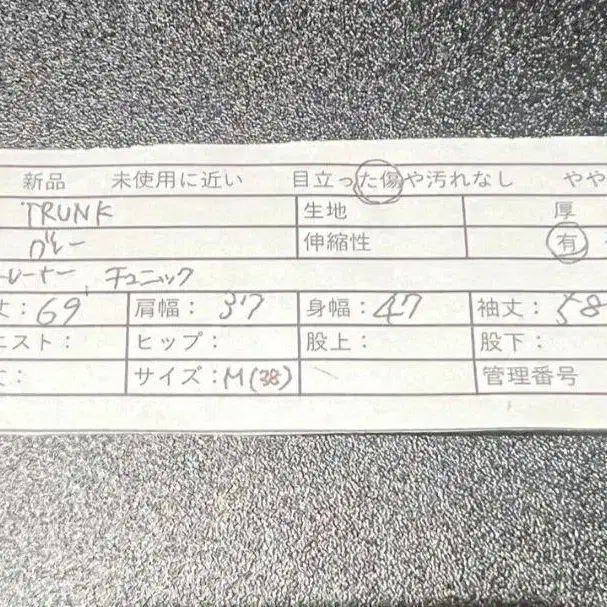 新品 未使用に近い 目立った傷や汚れなし やや
TRUNK 生地 厚
グレー 伸縮性 有
トレーナー、チュニック
丈:69 肩幅:37 身幅:47 袖丈:58
エスト: ヒップ: 股上: 股下:
丈: サイズ:M(38) 管理番号